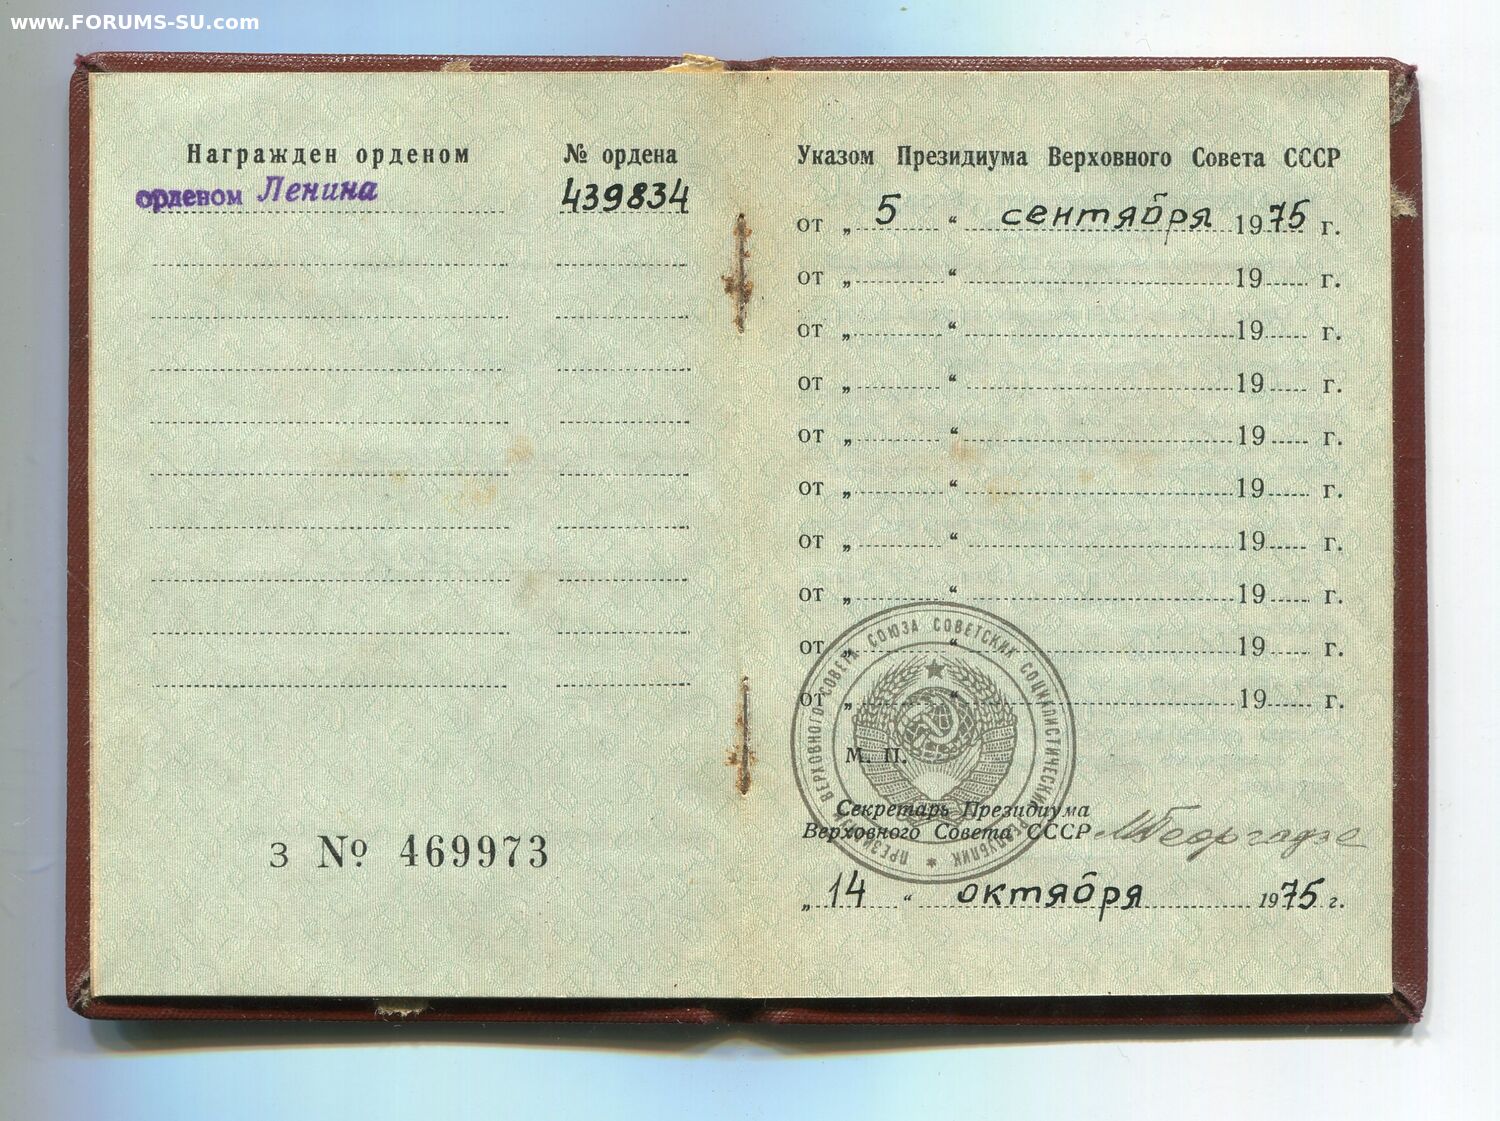 www.FORUMS-SU.com
Награжден орденом
№ ордена
орденом Ленина
439834
Указом Президиума Верховного Совета СССР
от „ 5 “ сентября 1975 г.
от „ “ 19 г.
от „ “ 19 г.
от „ “ 19 г.
от „ “ 19 г.
от „ “ 19 г.
от „ “ 19 г.
от „ “ 19 г.
от „ “ 19 г.
от „ “ 19 г.
ПРЕЗИДИУМ ВЕРХОВНОГО СОВЕТА СОЮЗА СОВЕТСКИХ СОЦИАЛИСТИЧЕСКИХ РЕСПУБЛИК
М. П.
Секретарь Президиума
Верховного Совета СССР
МГеоргадзе
„ 14 “ октября 1975 г.
З № 469973